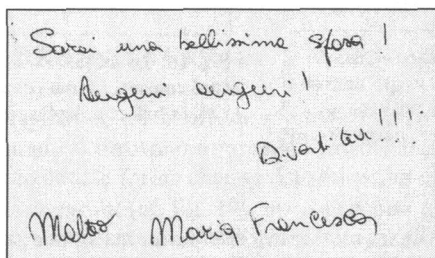 Sarai una bellissima sposa!
Auguri auguri!
Divertitevi!!!
Matteo Maria Francesca